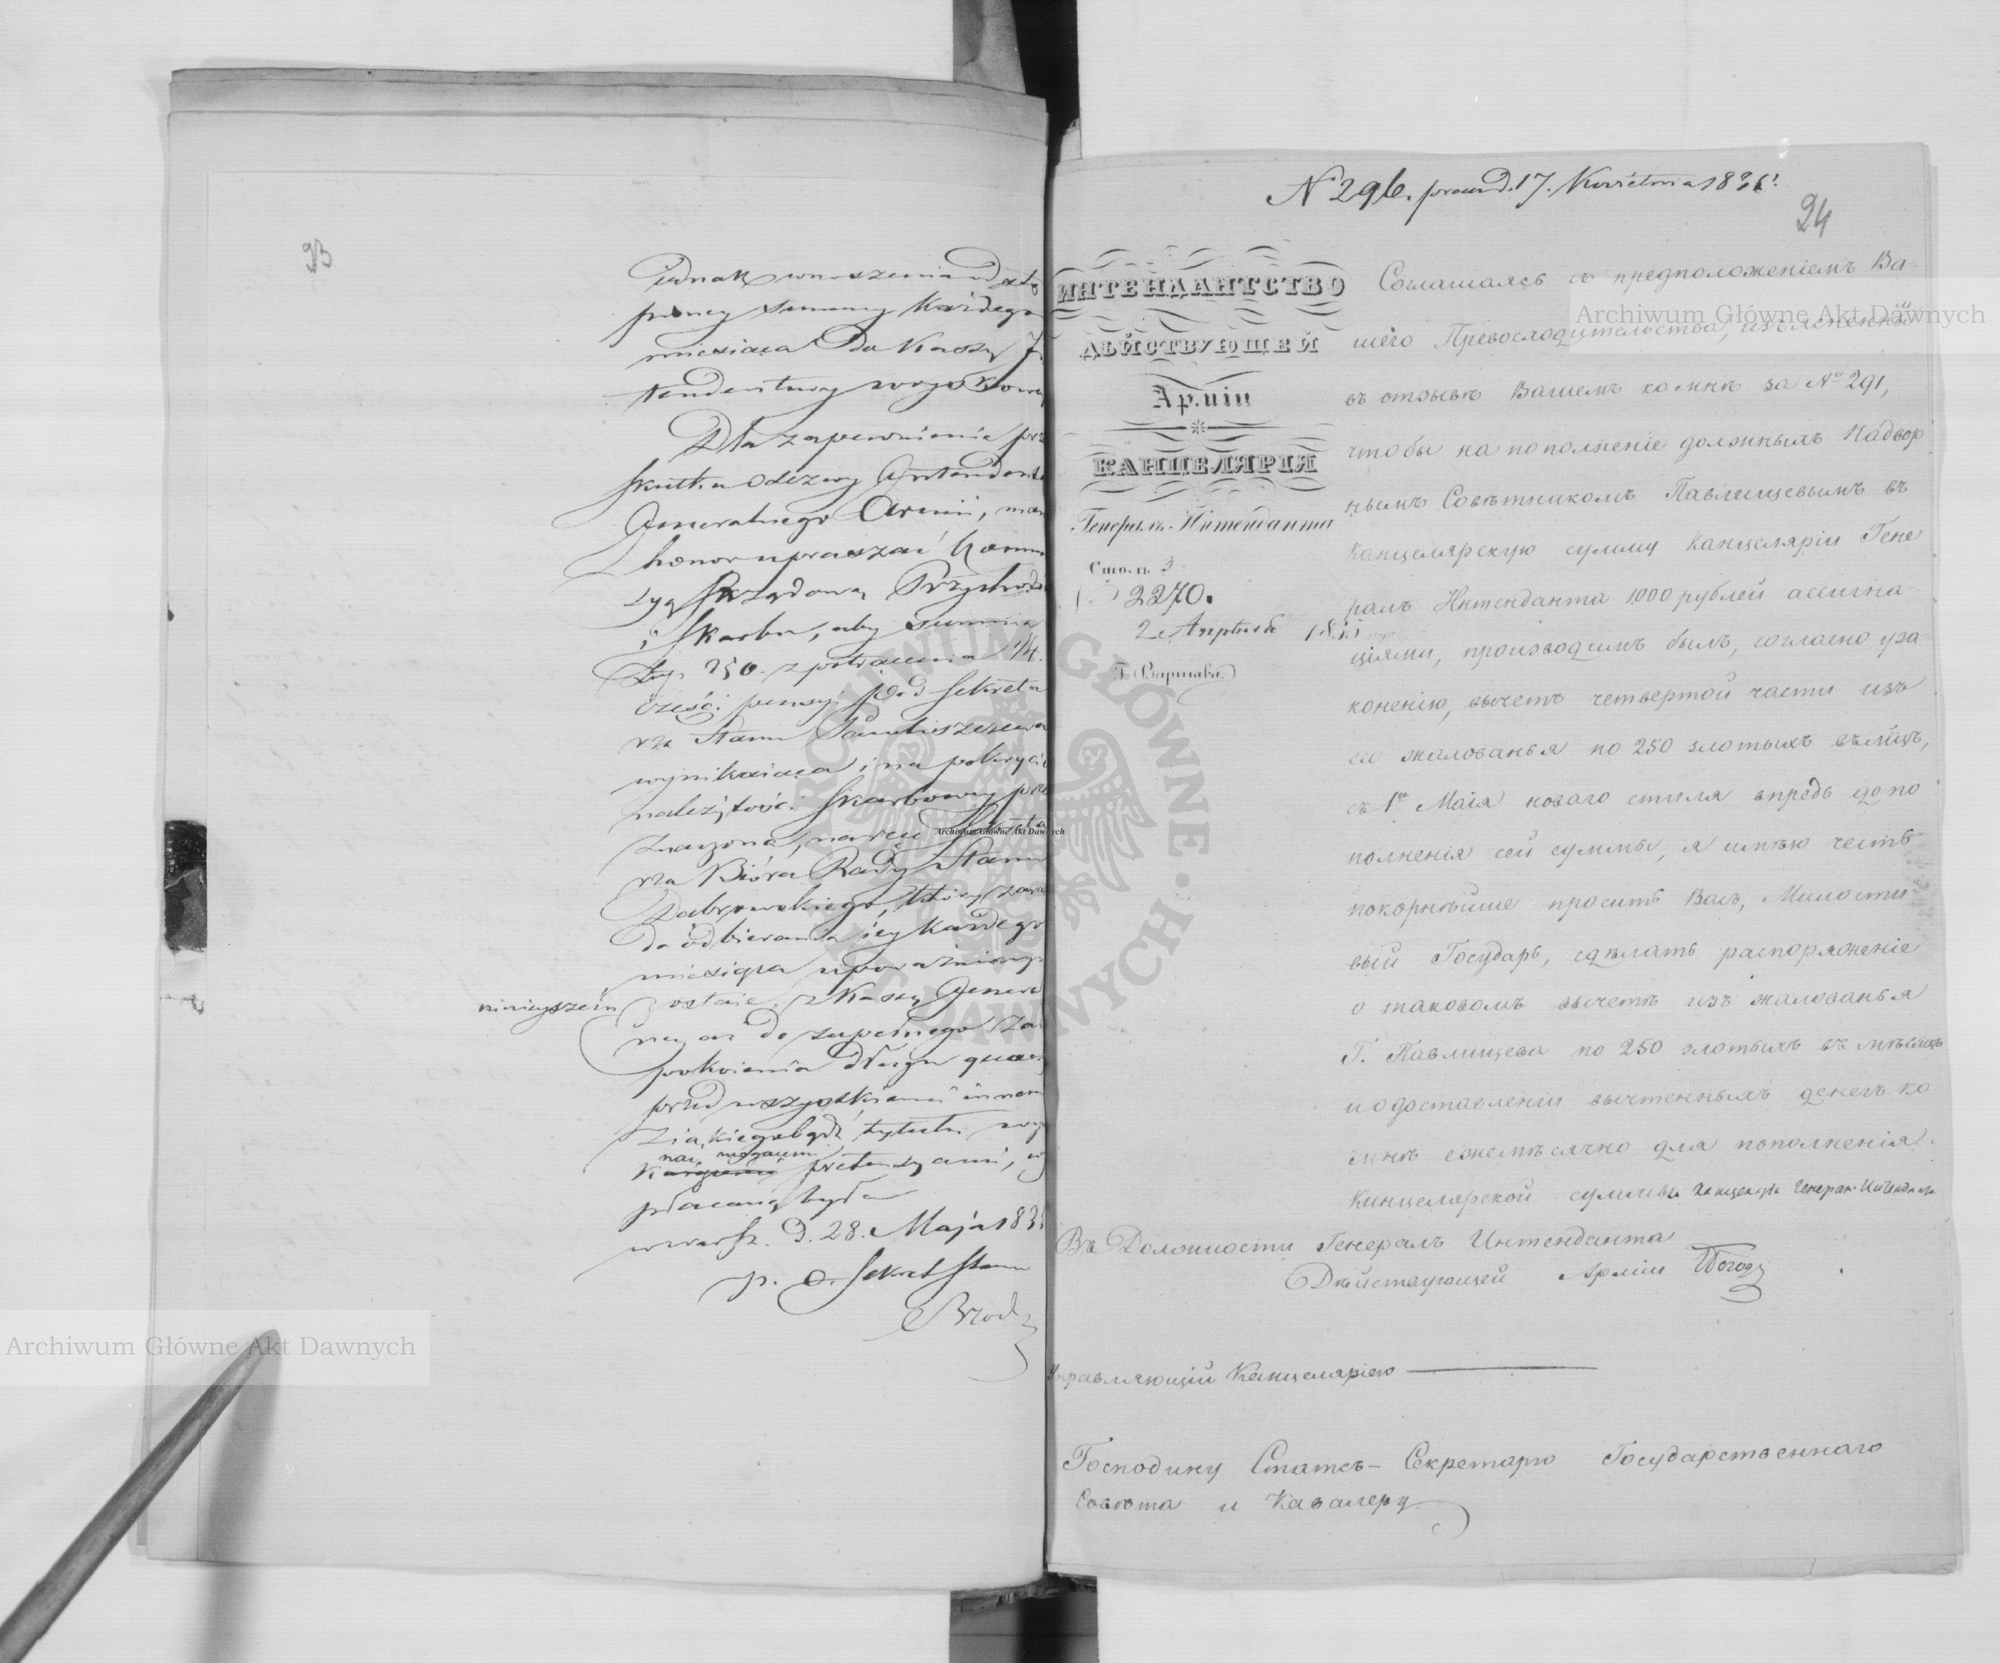 93
jednak wnoszenia
summy każdego
miesiąca do Kassy
tendentury
Dla zapewnienia
skutku odezwy Intendenta
Generalnego Armii, mam
honor upraszać Kommis
syą Rządową Przychodów
i Skarbu, aby summa
Złp. 250. z potrącenia 1/4.
części pensyi
Stanu
wynikaiąca i na pokrycie
należytości Skarbowey prze
znaczona, na ręce Sekreta
rza Bióra Rady Stanu
Dąbrowskiego, który zaraz
do odbierania iey każdego
miesiąca upoważniony
niniejszem zostaie, z Kassy Gener
do zupełnego zas
pokoienia długu
przed wszystkiemi innemi
z iakiegobądź tytułu
pretensyami, wy
płacaną była
w Warsz. d. 28. Maja 183
p. o. Sekret Stanu
N 296. praes. d. 17. Kwietnia 183
94
ИНТЕНДАНТСТВО
ДѢЙСТВУЮЩЕЙ
Арміи
КАНЦЕЛЯРІЯ
Генералъ-Интенданта
Столъ 3
2270.
2 Апрѣля 183
Г. Варшава
Соглашаясь съ предположеніемъ Ва-
шего Превосходительства, изъясненнымъ
въ отзывѣ Вашемъ ко мнѣ за № 291,
чтобы на пополненіе должныхъ Надвор
нымъ Совѣтникомъ Павлищевымъ въ
Канцелярскую сумму Канцеляріи Гене
ралъ Интенданта 1000 рублей ассигна-
ціями, производимъ былъ, согласно уза-
коненію, вычетъ четвертой части изъ
его жалованья по 250 злотыхъ въ мѣсяцъ,
съ 1го Маія новаго стиля впредь до по
полненія сей суммы, я имѣю честь
покорнѣйше просить Васъ, Милости-
вый Государь, сдѣлать распоряженіе
о таковомъ вычетѣ изъ жалованья
Г. Павлищева по 250 злотыхъ въ мѣсяцъ
и о доставленіи вычтенныхъ денегъ ко
мнѣ ежемѣсячно для пополненія
Канцелярской суммы Канцеляріи Генерал-Интенданта
Въ Должности Генералъ Интенданта
Дѣйствующей Арміи Погоди
Управляющій Канцеляріею
Господину Статсъ-Секретарю Государственнаго
Совѣта и Кавалеру
Archiwum Główne Akt Dawnych
Archiwum Główne Akt Dawnych
Archiwum Główne Akt Dawnych
ARCHIWUM GŁÓWNE AKT DAWNYCH